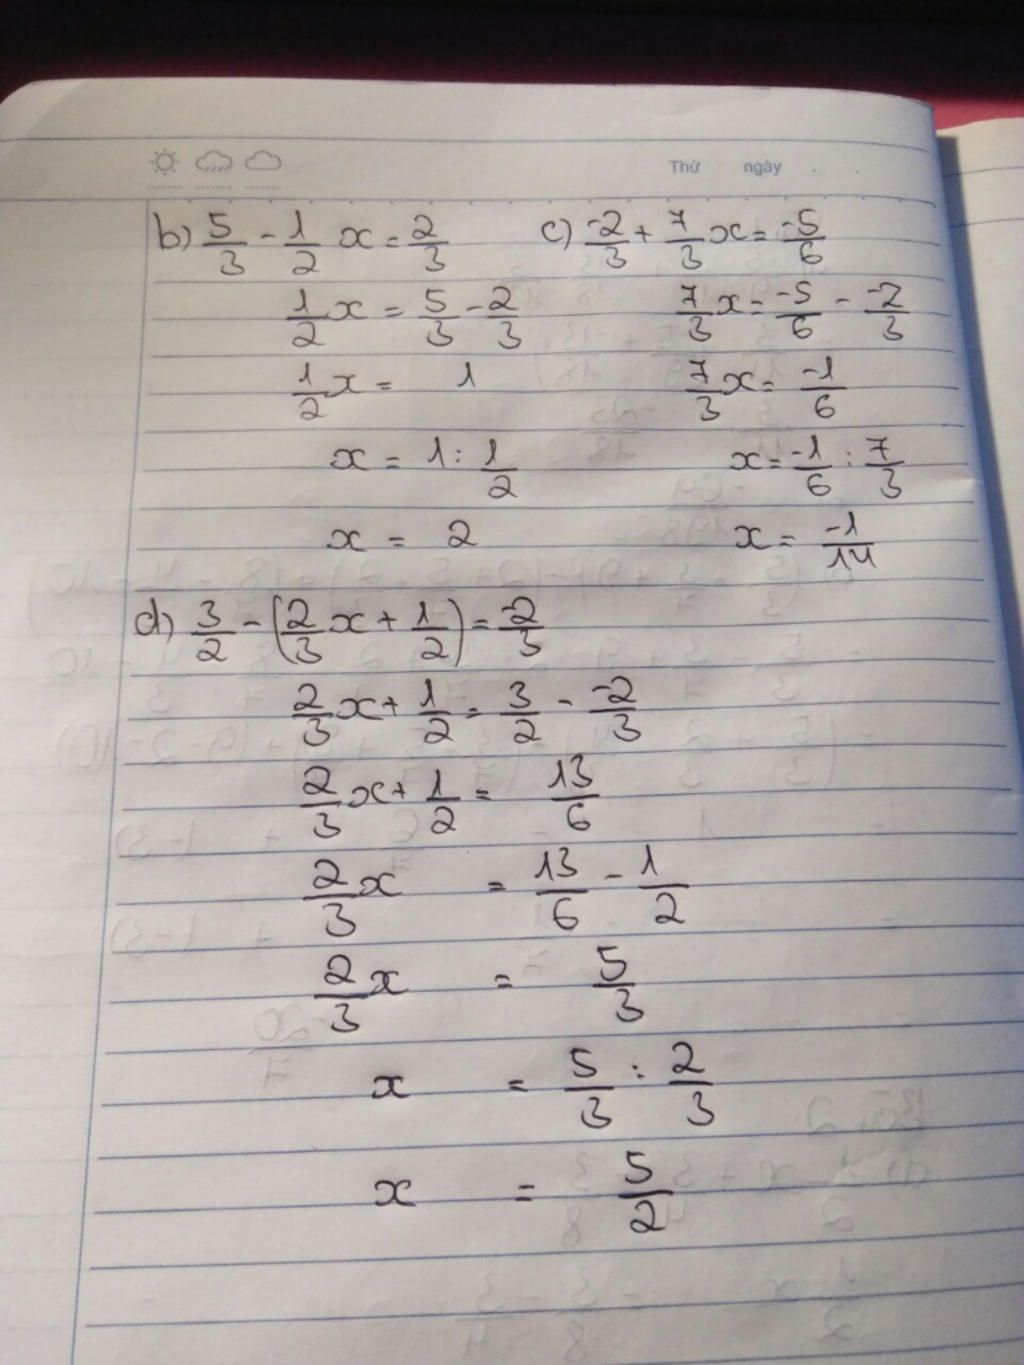 Thứ ngày
b) 5/3 - 1/2 x = 2/3
1/2 x = 5/3 - 2/3
1/2 x = 1
x = 1 : 1/2
x = 2
c) -2/3 + 7/3 x = -5/6
7/3 x = -5/6 - -2/3
7/3 x = -1/6
x = -1/6 : 7/3
x = -1/14
d) 3/2 - (2/3 x + 1/2) = -2/3
2/3 x + 1/2 = 3/2 - -2/3
2/3 x + 1/2 = 13/6
2/3 x = 13/6 - 1/2
2/3 x = 5/3
x = 5/3 : 2/3
x = 5/2